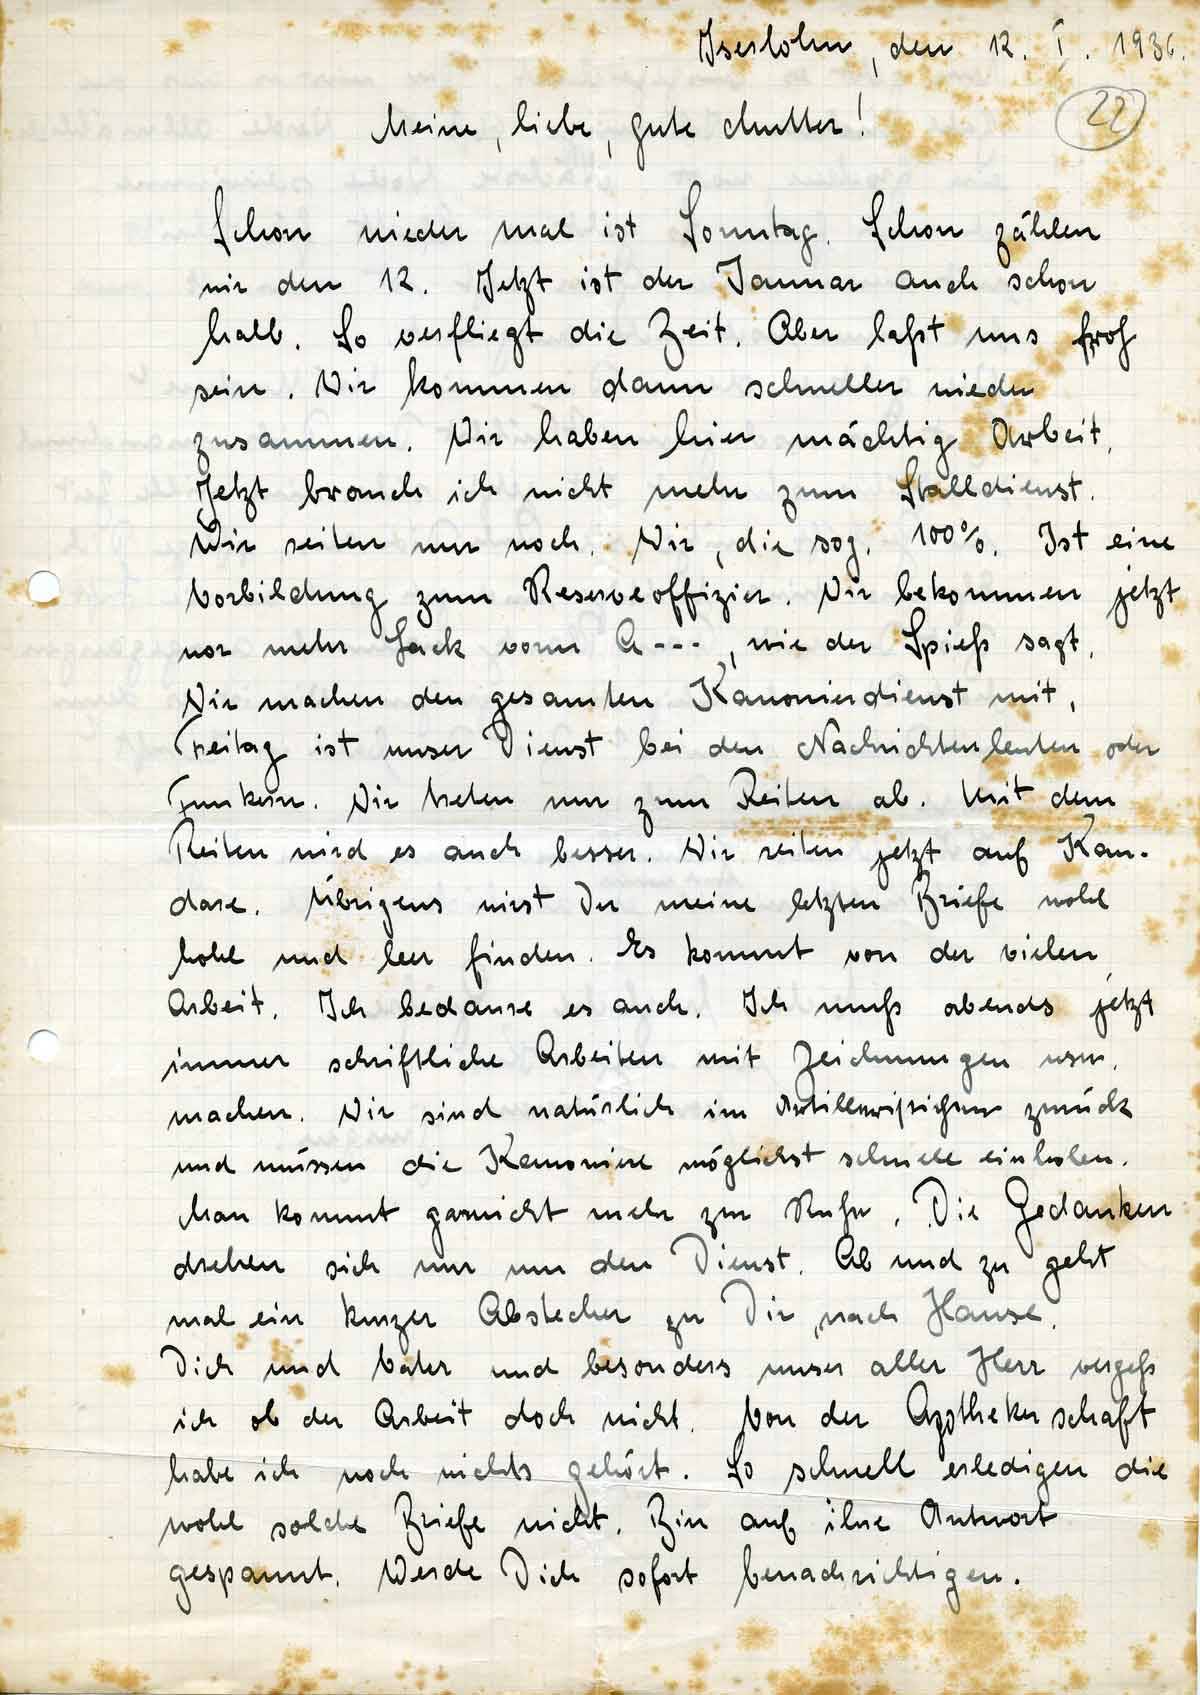 Iserlohn, den 12. I. 1936.
22
Meine, liebe, gute Mutter!
Schon wieder mal ist Sonntag. Schon zählen
wir den 12. Jetzt ist der Januar auch schon
halb. So verfliegt die Zeit. Aber laßt uns froh
sein. Wir kommen dann schneller wieder
zusammen. Wir haben hier mächtig Arbeit.
Jetzt brauch ich nicht mehr zum Stalldienst.
Wir reiten nur noch. Wir, die sog. 100%. Ist eine
Vorbildung zum Reserveoffizier. Wir bekommen jetzt
nor mehr Sack vorm A---, wie der Spieß sagt.
Wir machen den gesamten Kanonierdienst mit,
Freitag ist unser Dienst bei den Nachrichtenleuten oder
Funkern. Wir treten nur zum Reiten ab. Mit dem
Reiten wird es auch besser. Wir reiten jetzt auf Kan-
dare. Übrigens wirst Du meine letzten Briefe wohl
hohl und leer finden. Es kommt von der vielen
Arbeit. Ich bedaure es auch. Ich muß abends jetzt
immer schriftliche Arbeiten mit Zeichnungen usw.
machen. Wir sind natürlich im zurück
und müssen die Kanoniere möglichst schnell einholen.
Man kommt garnicht mehr zur Ruhe. Die Gedanken
drehen sich nur um den Dienst. Ab und zu geht
mal ein kurzer Abstecher zu Dir, nach Hause.
Dich und Vater und besonders unser aller Herr vergeß
ich ob der Arbeit doch nicht. Von der Apothekerschaft
habe ich noch nichts gehört. So schnell erledigen die
wohl solche Briefe nicht. Bin auf ihre Antwort
gespannt. Werde Dich sofort benachrichtigen.